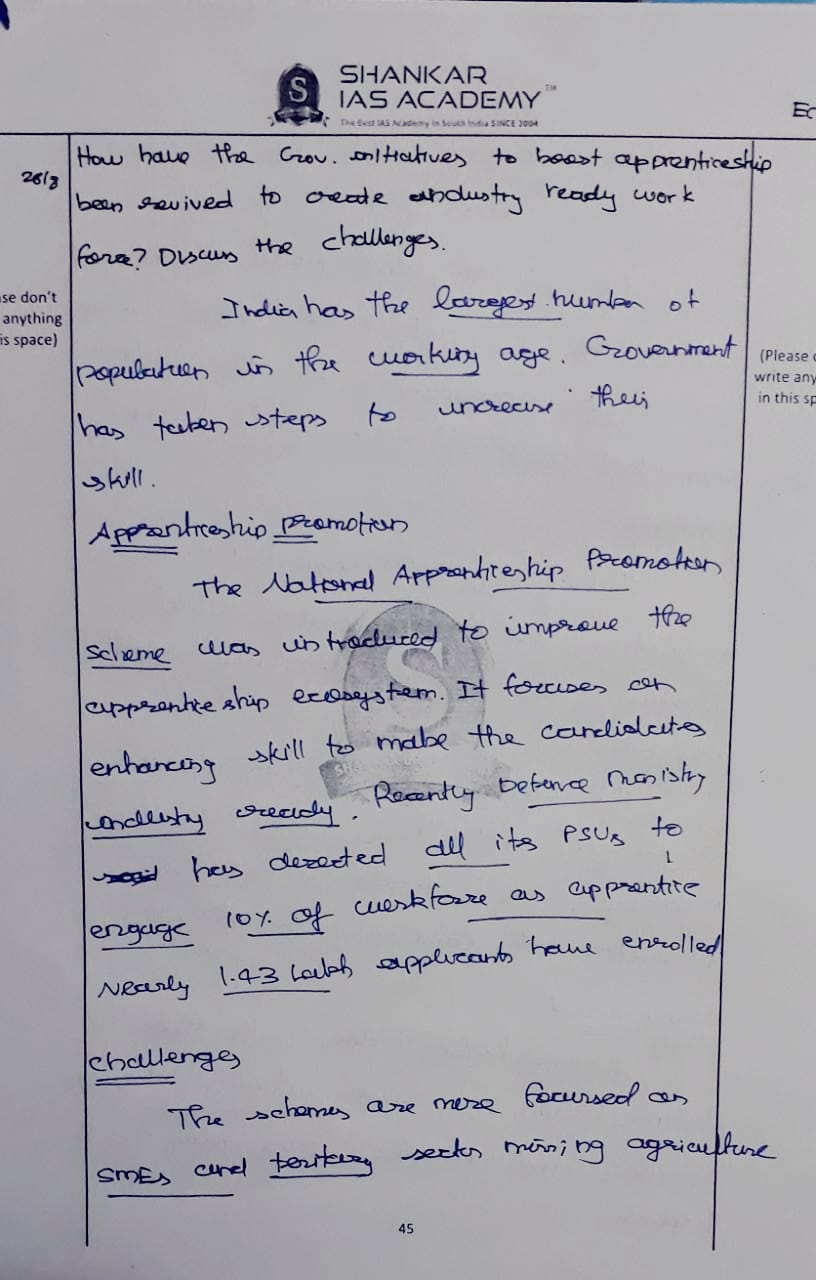 SHANKAR
IAS ACADEMY™
The Best IAS Academy in South India SINCE 2004
Ec
26/8
How have the Gov. initiatives to boost apprenticeship
been revived to create industry ready work
force? Discuss the challenges.
se don't
anything
is space)
India has the largest number of
population in the working age. Government
has taken steps to increase their
skill.
(Please
write any
in this sp
Apprenticeship promotion
The National Apprenticeship Promotion
Scheme was introduced to improve the
apprenticeship ecosystem. It focuses on
enhancing skill to make the candidates
industry ready. Recently Defence Ministry
has directed all its PSUs to
engage 10% of workforce as apprentice
Nearly 1.43 Lakh applicants have enrolled
Challenges
The schemes are more focursed on
SMEs and teritary sector missing agriculture
45